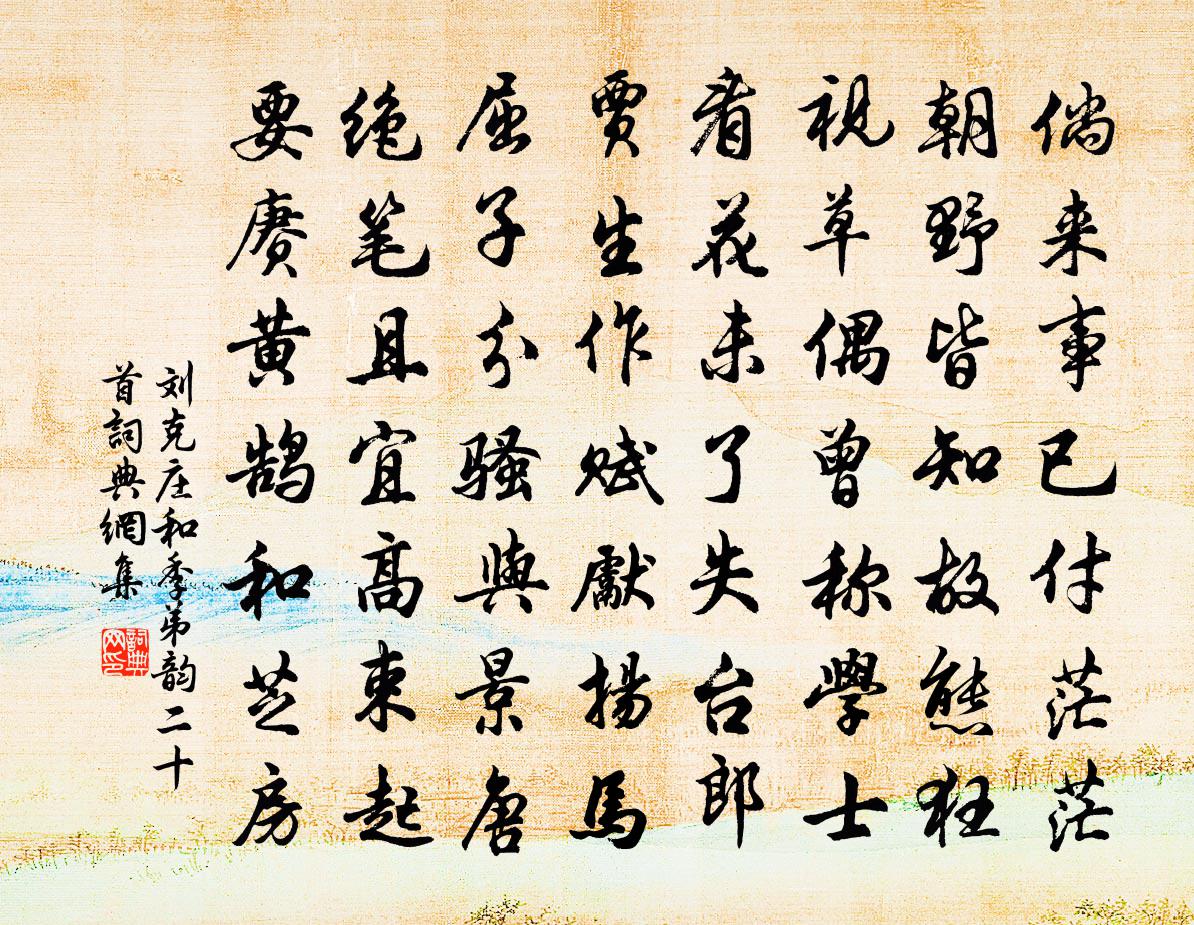 倘来事已付茫茫
朝野皆知故態狂
視草偶曾称學士
看花未了失台郎
賈生作赋獻揚馬
屈子分騷與景唐
绝笔且宜高束起
要赓黄鹄和芝房
刘克庄和季弟韵二十
首詞典網集
詞典
网印